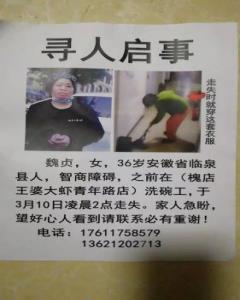 寻人启事
走失时就穿这套衣服
魏贞，女，36岁安徽省临泉
县人，智商障碍，之前在（槐店
王婆大虾青年路店）洗碗工，于
3月10日凌晨2点走失。家人急盼，
望好心人看到请联系必有重谢！
电话：17611758579
13621202713